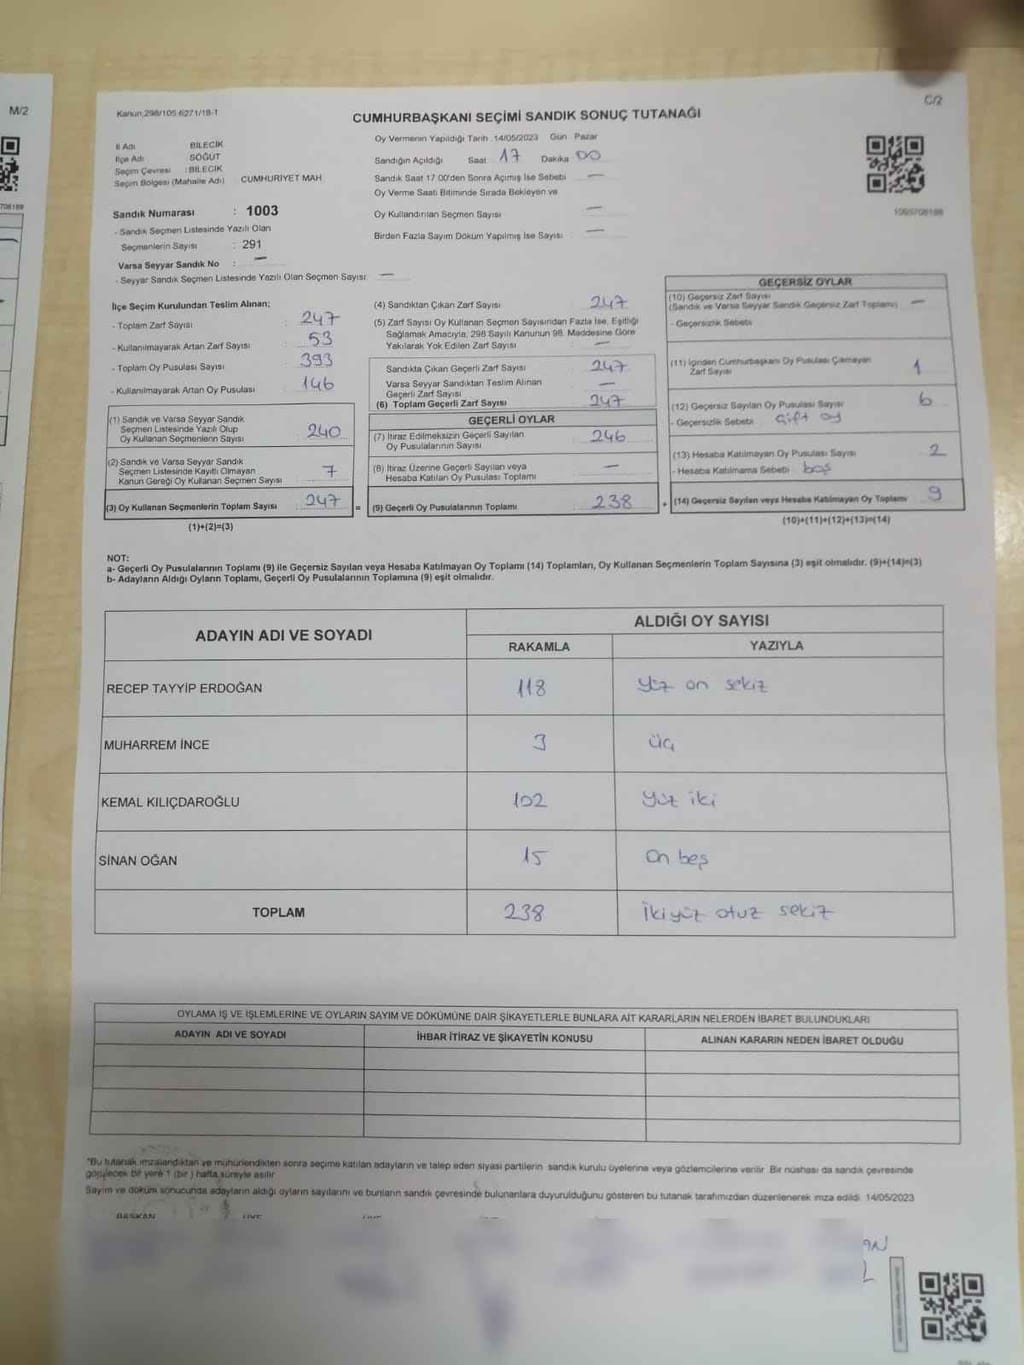 M/2
C/2
Kanun;298/105-6271/18-1
CUMHURBAŞKANI SEÇİMİ SANDIK SONUÇ TUTANAĞI
İl Adı BİLECİK
İlçe Adı SÖĞÜT
Seçim Çevresi : BİLECİK
Seçim Bölgesi (Mahalle Adı) CUMHURİYET MAH
Sandık Numarası : 1003
- Sandık Seçmen Listesinde Yazılı Olan
Seçmenlerin Sayısı : 291
Varsa Seyyar Sandık No : —
- Seyyar Sandık Seçmen Listesinde Yazılı Olan Seçmen Sayısı: —
Oy Vermenin Yapıldığı Tarih :14/05/2023 Gün Pazar
Sandığın Açıldığı Saat: 17 Dakika 00
Sandık Saat 17:00'den Sonra Açımış İse Sebebi —
Oy Verme Saati Bitiminde Sırada Bekleyen ve
Oy Kullandırılan Seçmen Sayısı —
Birden Fazla Sayım Döküm Yapılmış İse Sayısı : —
İlçe Seçim Kurulundan Teslim Alınan;
- Toplam Zarf Sayısı : 247
- Kullanılmayarak Artan Zarf Sayısı : 53
- Toplam Oy Pusulası Sayısı : 393
- Kullanılmayarak Artan Oy Pusulası : 146
(1) Sandık ve Varsa Seyyar Sandık
Seçmen Listesinde Yazılı Olup
Oy Kullanan Seçmenlerin Sayısı 240
(2) Sandık ve Varsa Seyyar Sandık
Seçmen Listesinde Kayıtlı Olmayan
Kanun Gereği Oy Kullanan Seçmen Sayısı 7
(3) Oy Kullanan Seçmenlerin Toplam Sayısı 247 =
(1)+(2)=(3)
(4) Sandıktan Çıkan Zarf Sayısı 247
(5) Zarf Sayısı Oy Kullanan Seçmen Sayısından Fazla İse, Eşitliği
Sağlamak Amacıyla, 298 Sayılı Kanunun 98. Maddesine Göre
Yakılarak Yok Edilen Zarf Sayısı —
Sandıkta Çıkan Geçerli Zarf Sayısı 247
Varsa Seyyar Sandıktan Teslim Alınan
Geçerli Zarf Sayısı —
(6) Toplam Geçerli Zarf Sayısı 247
GEÇERLİ OYLAR
(7) İtiraz Edilmeksizin Geçerli Sayılan
Oy Pusulalarının Sayısı 246
(8) İtiraz Üzerine Geçerli Sayılan veya
Hesaba Katılan Oy Pusulası Toplamı —
(9) Geçerli Oy Pusulalarının Toplamı 238 +
GEÇERSİZ OYLAR
(10) Geçersiz Zarf Sayısı
(Sandık ve Varsa Seyyar Sandık Geçersiz Zarf Toplamı) —
- Geçersizlik Sebebi
(11) İçinden Cumhurbaşkanı Oy Pusulası Çıkmayan
Zarf Sayısı 1
(12) Geçersiz Sayılan Oy Pusulası Sayısı 6
- Geçersizlik Sebebi Çift oy
(13) Hesaba Katılmayan Oy Pusulası Sayısı 2
- Hesaba Katılmama Sebebi boş
(14) Geçersiz Sayılan veya Hesaba Katılmayan Oy Toplamı 9
(10)+(11)+(12)+(13)=(14)
NOT:
a- Geçerli Oy Pusulalarının Toplamı (9) ile Geçersiz Sayılan veya Hesaba Katılmayan Oy Toplamı (14) Toplamları, Oy Kullanan Seçmenlerin Toplam Sayısına (3) eşit olmalıdır. (9)+(14)=(3)
b- Adayların Aldığı Oyların Toplamı, Geçerli Oy Pusulalarının Toplamına (9) eşit olmalıdır.
ADAYIN ADI VE SOYADI
ALDIĞI OY SAYISI
RAKAMLA YAZIYLA
RECEP TAYYİP ERDOĞAN 118 yüz on sekiz
MUHARREM İNCE 3 üç
KEMAL KILIÇDAROĞLU 102 yüz iki
SİNAN OĞAN 15 On beş
TOPLAM 238 İkiyüz otuz sekiz
OYLAMA İŞ VE İŞLEMLERİNE VE OYLARIN SAYIM VE DÖKÜMÜNE DAİR ŞİKAYETLERLE BUNLARA AİT KARARLARIN NELERDEN İBARET BULUNDUKLARI
ADAYIN ADI VE SOYADI İHBAR İTİRAZ VE ŞİKAYETİN KONUSU ALINAN KARARIN NEDEN İBARET OLDUĞU
*Bu tutanak imzalandıktan ve mühürlendikten sonra seçime katılan adayların ve talep eden siyasi partilerin sandık kurulu üyelerine veya gözlemcilerine verilir. Bir nüshası da sandık çevresinde
görülecek bir yere 1 (bir) hafta süreyle asılır
Sayım ve döküm sonucunda adayların aldığı oyların sayılarını ve bunların sandık çevresinde bulunanlara duyurulduğunu gösteren bu tutanak tarafımızdan düzenlenerek imza edildi. 14/05/2023
BAŞKAN ÜYE ÜYE